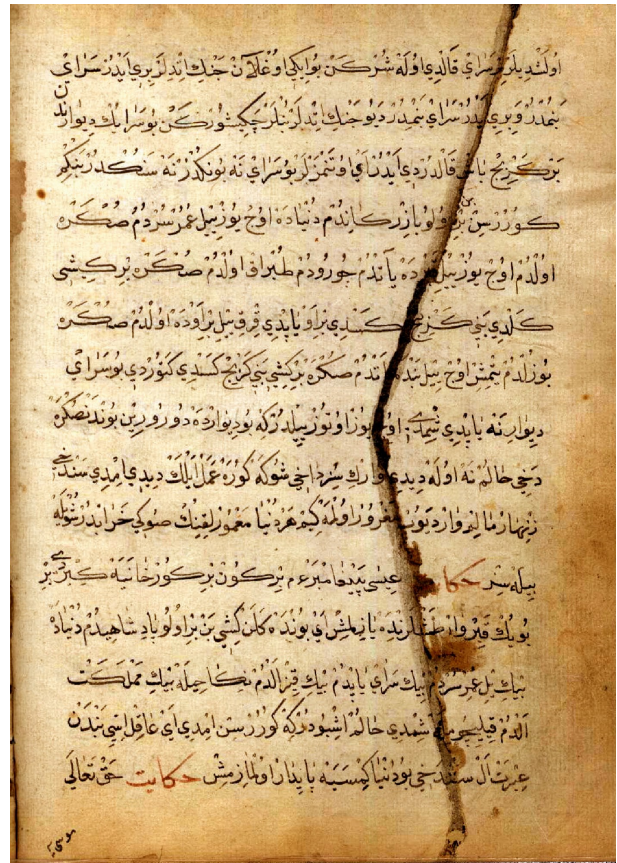 اولندیلر سراي قالدي اوله شركن بو ایكي اوغلان جنك اتدلر بري ایدر سراي
بنمدر و بري ایدر سراي بنمدر دیو جنك اتدلر بونلر چكیشوركن بو سرایك دیوارندن
بر كربج قالدردي ایدر اي اوتنمزلر بو سراي نه بونكدر نه سنكدر بنكم
كوررسن بن بر اولو بازركانیدم دنیاده اوچ یوز ییل عمر سردم صكره
اولدم اوچ یوز ییل یرده یاتدم چورودم طبراق اولدم صكره بر كیشي
كلدي بني كربج كسدي بر او یاپدي قرق ییل بر اوده اولدم صكره
بوزلدم یتمش اوچ ییل یاتدم صكره بر كشي بني كربج كسدي كتوردي بو سراي
دیوارنه یاپدي شمدي اوچ یوز اوتوز ییلدر كه بو دیوارده دورورین بوندن صكره
دخي حالم نه اوله دیدي وارك سز داخي شوكه كوره عمل ایلك دیدي امدي سن دخي
زنهار مالم وار دیو مغرور اولمه كیم هر دنیا معمورلقینك صوكي خرابدر شویله
بیله سز حكایت عیسى پیغامبر عم بر كون بر كورخانیه كیردي بر
بویك قبر وار طشلرنده یازیلمش اي بونده كلن كشي بن بر اولو پادشاهیدم دنیاده
بیك ییل عمر سردم بیك سراي یاپدم بیك قز الدم نكاحیله بیك مملكت
الدم قیلیچومله شمدي حالم اشبودر كه كوررسن امدي اي عاقل اتسي بندن
عبرت آل سن دخي بو دنیا كمسیه پایدار اولمازمش حكایت حق تعالى
موسى یه